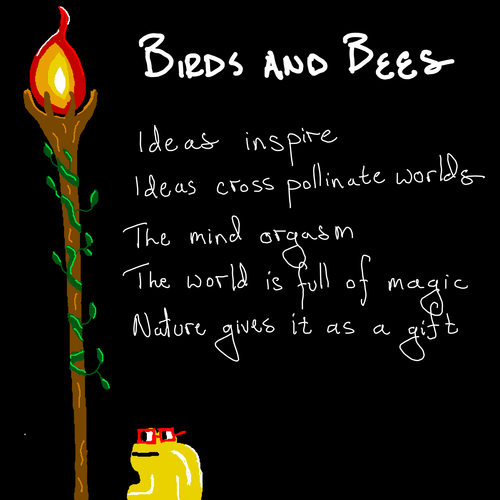 BIRDS AND BEES
Ideas inspire
Ideas cross pollinate worlds
The mind orgasm
The world is full of magic
Nature gives it as a gift